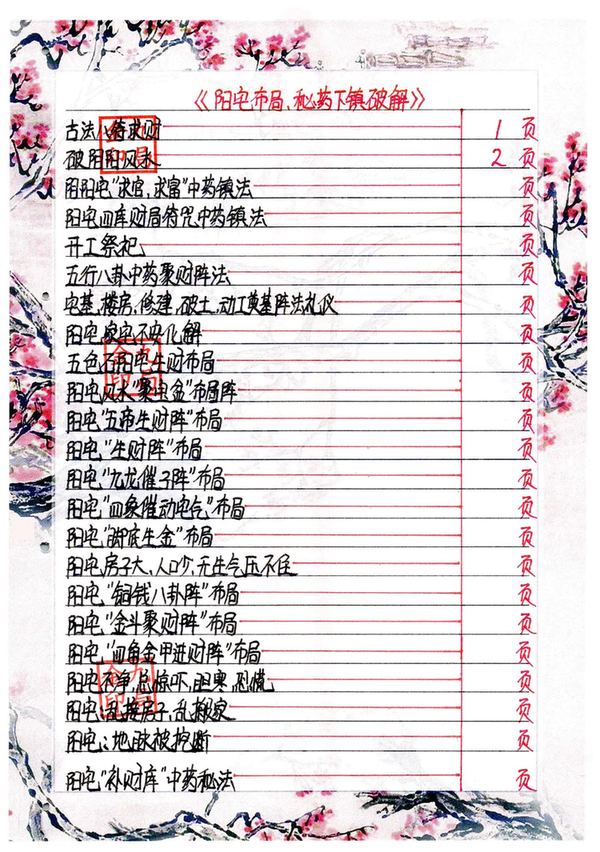 《阳宅布局、秘药下镇破解》
古法八符求财 1 页
破阴阳风水 2 页
阴阳宅"求官、求富"中药镇法 页
阳宅四库财局符咒中药镇法 页
开工祭祀 页
五行八卦中药聚财阵法 页
宅基、楼房、修建、破土、动工奠基阵法礼仪 页
阳宅家宅不安化解 页
五色石阳宅生财布局 页
阳宅风水"聚宝金"布局阵 页
阳宅"五帝生财阵"布局 页
阳宅"生财阵"布局 页
阳宅"九龙催子阵"布局 页
阳宅"四象催动宅气"布局 页
阳宅"脚底生金"布局 页
阳宅房子大、人口少、无生气压不住 页
阳宅"铜钱八卦阵"布局 页
阳宅"金斗聚财阵"布局 页
阳宅"四角金甲进财阵"布局 页
阳宅不净总惊吓、胆寒、恐慌 页
阳宅:乱接房子,乱搬家 页
阳宅:地脉被挖断 页
阳宅"补财库"中药秘法 页